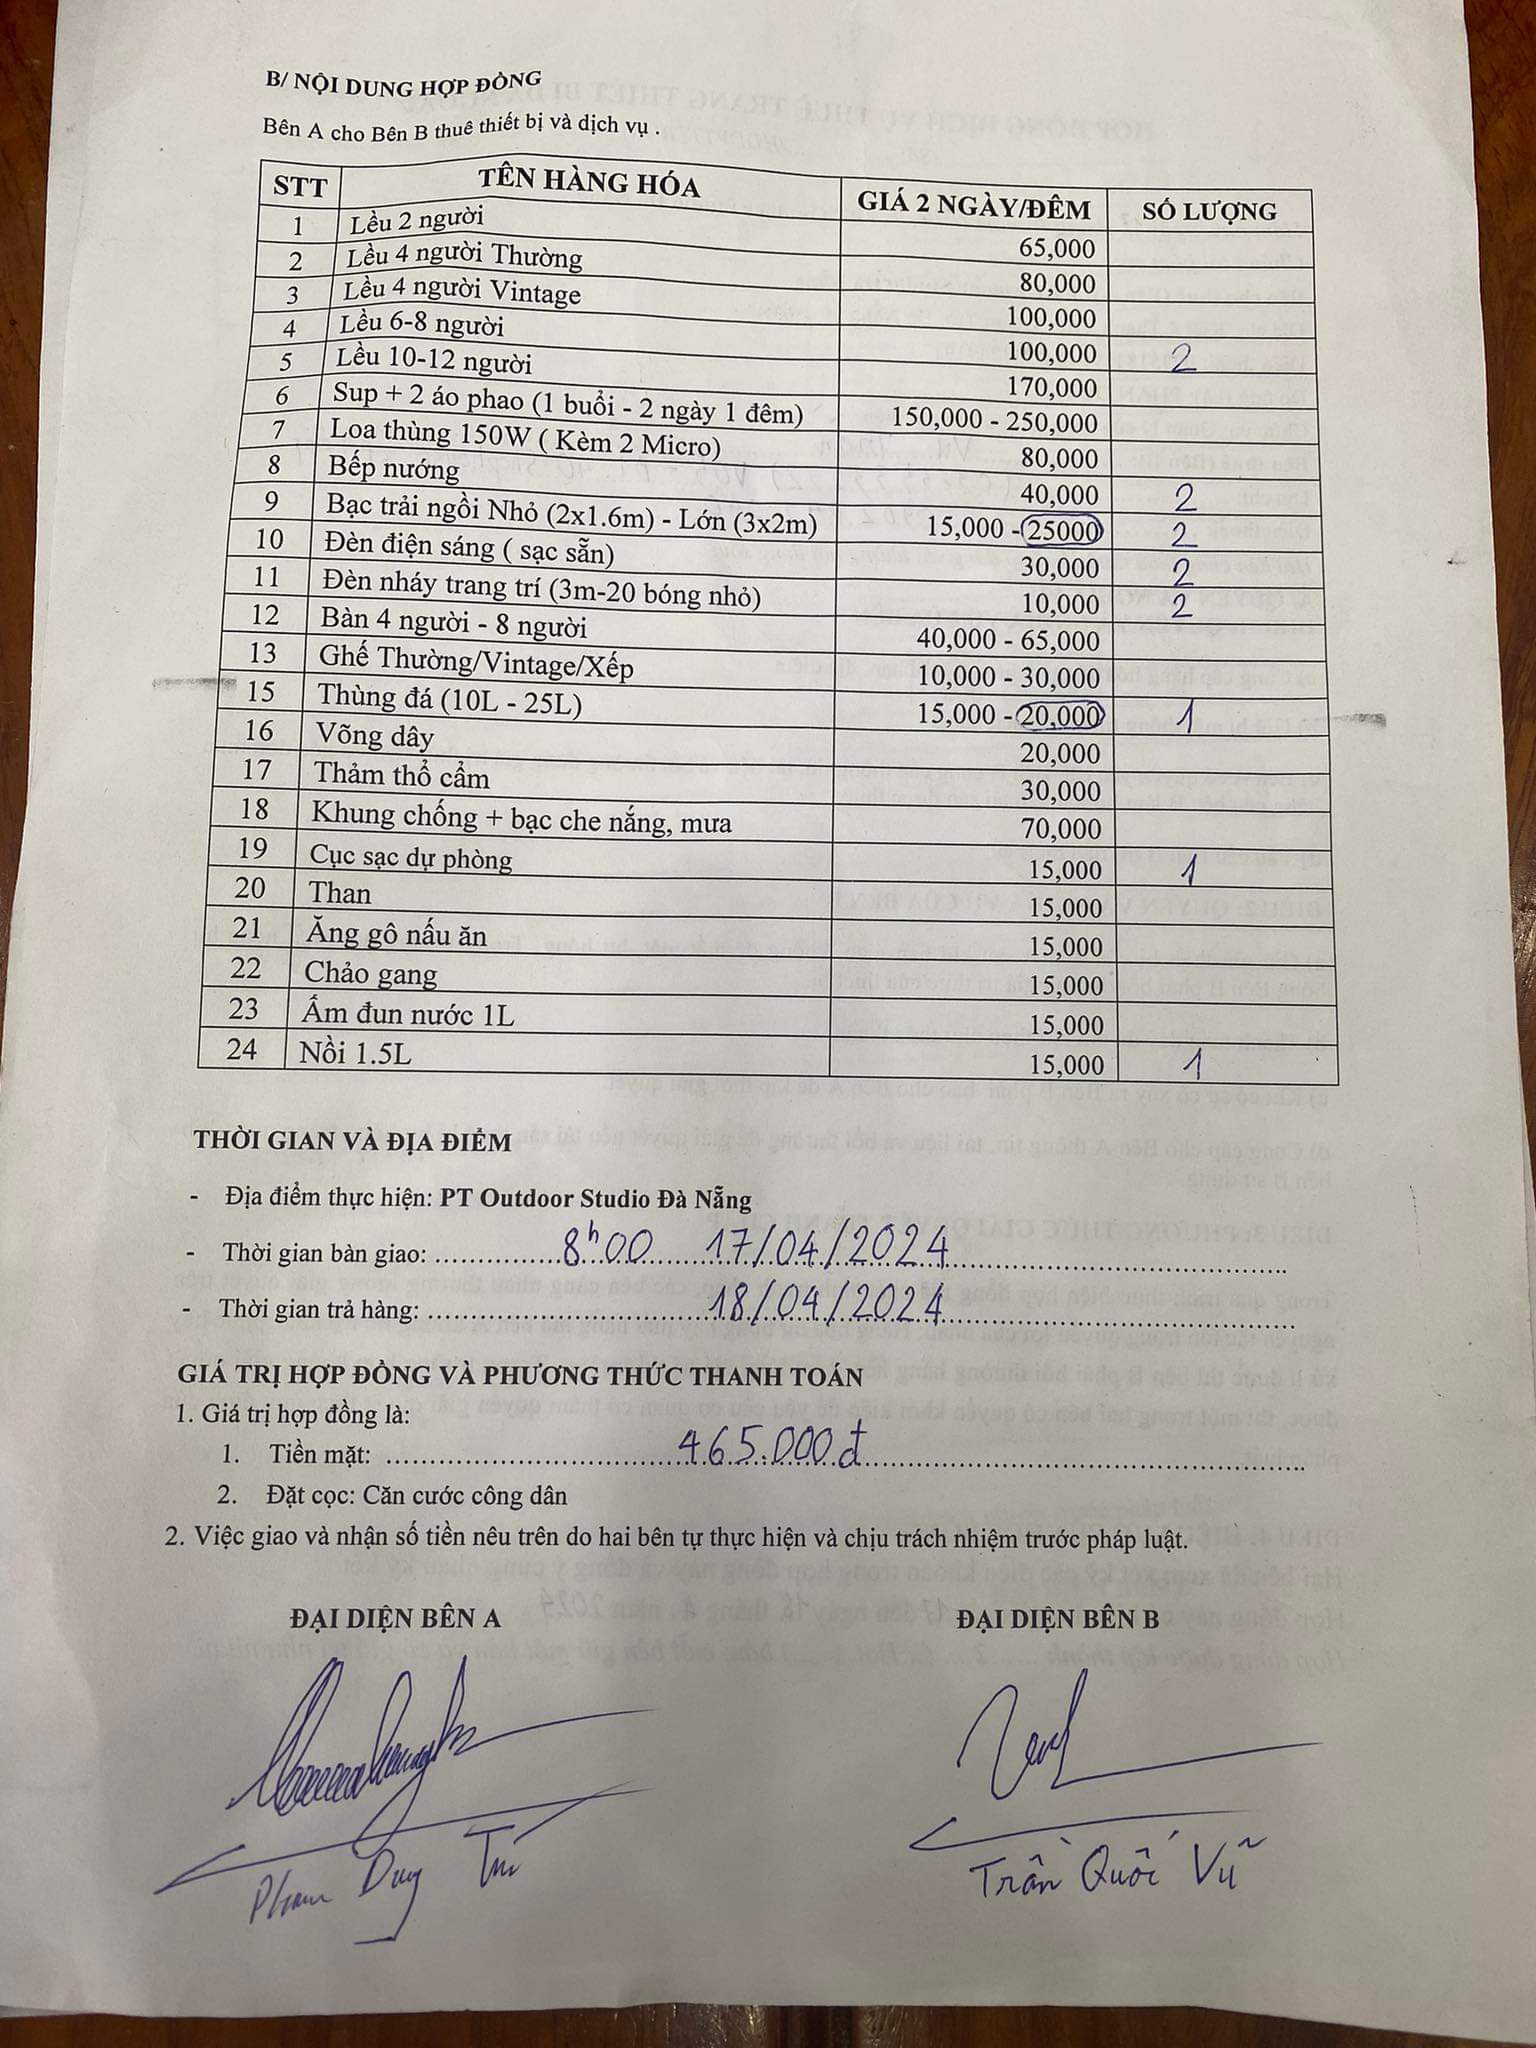 B/ NỘI DUNG HỢP ĐỒNG
Bên A cho Bên B thuê thiết bị và dịch vụ .
STT TÊN HÀNG HÓA GIÁ 2 NGÀY/ĐÊM SỐ LƯỢNG
1 Lều 2 người 65,000
2 Lều 4 người Thường 80,000
3 Lều 4 người Vintage 100,000
4 Lều 6-8 người 100,000 2
5 Lều 10-12 người 170,000
6 Sup + 2 áo phao (1 buổi - 2 ngày 1 đêm) 150,000 - 250,000
7 Loa thùng 150W ( Kèm 2 Micro) 80,000
8 Bếp nướng 40,000 2
9 Bạc trải ngồi Nhỏ (2x1.6m) - Lớn (3x2m) 15,000 - 25000 2
10 Đèn điện sáng ( sạc sẵn) 30,000 2
11 Đèn nháy trang trí (3m-20 bóng nhỏ) 10,000 2
12 Bàn 4 người - 8 người 40,000 - 65,000
13 Ghế Thường/Vintage/Xếp 10,000 - 30,000
15 Thùng đá (10L - 25L) 15,000 - 20,000 1
16 Võng dây 20,000
17 Thảm thổ cẩm 30,000
18 Khung chống + bạc che nắng, mưa 70,000
19 Cục sạc dự phòng 15,000 1
20 Than 15,000
21 Ăng gô nấu ăn 15,000
22 Chảo gang 15,000
23 Ấm đun nước 1L 15,000
24 Nồi 1.5L 15,000 1
THỜI GIAN VÀ ĐỊA ĐIỂM
- Địa điểm thực hiện: PT Outdoor Studio Đà Nẵng
- Thời gian bàn giao: 8h00 17/04/2024
- Thời gian trả hàng: 18/04/2024
GIÁ TRỊ HỢP ĐỒNG VÀ PHƯƠNG THỨC THANH TOÁN
1. Giá trị hợp đồng là:
1. Tiền mặt: 465.000đ
2. Đặt cọc: Căn cước công dân
2. Việc giao và nhận số tiền nêu trên do hai bên tự thực hiện và chịu trách nhiệm trước pháp luật.
ĐẠI DIỆN BÊN A ĐẠI DIỆN BÊN B
Phạm Duy Tú Trần Quốc Vũ